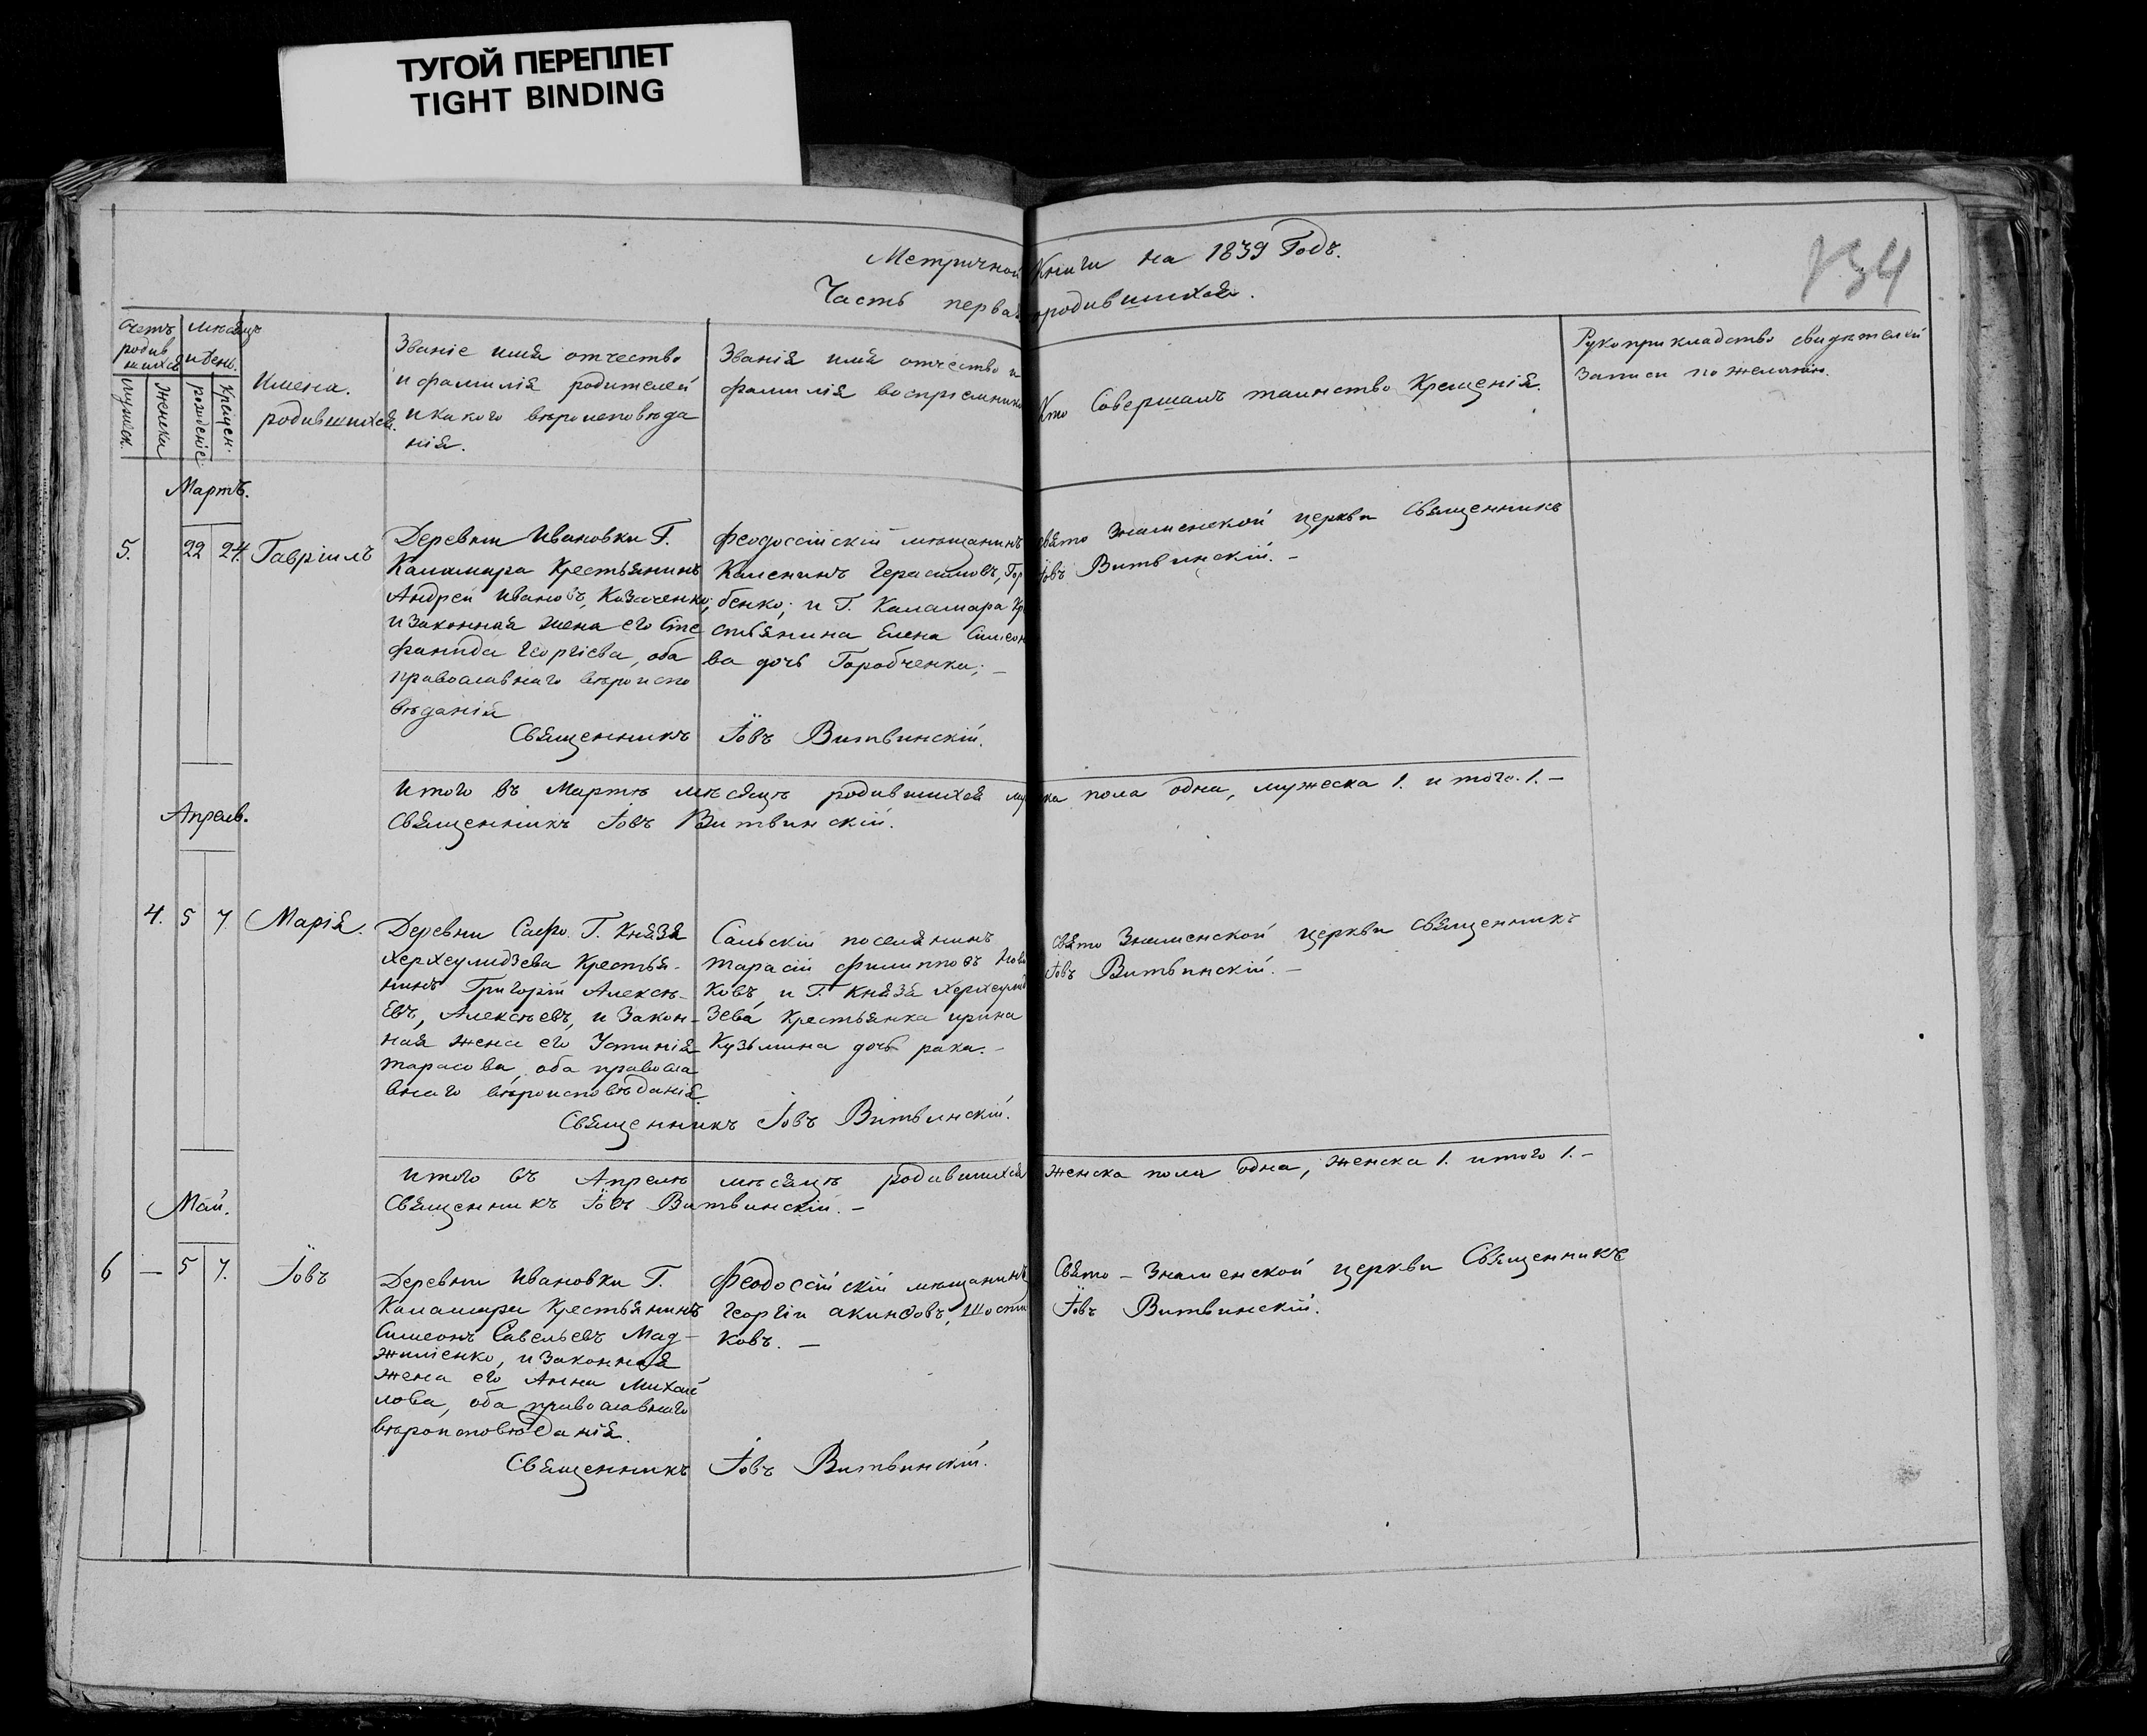 ТУГОЙ ПЕРЕПЛЕТ
TIGHT BINDING
Метричной Книги на 1839 Годъ.
Часть первая родившихся.
134
Счетъ родившихся
мужеск.
женска
Месяцъ и день.
рожденіе
Крещен:
Имена.
родившихся.
Званіе имя отчество
и фамилія родителей
и какого вѣроисповѣда
нія.
Званія имя отчество и
фамилія воспріемнико
Кто Совершалъ таинство Крещенія.
Рукоприкладство свидѣтелей
Записи по желанію.
Мартъ.
5. 22 24 Гавріилъ
Деревни Ивановки Г.
Каламара Крестьянинъ
Андрей Ивановъ, Козаченко;
и законная жена его Сте
фанида Георгіева, оба
православнаго вѣроиспо
вѣданія
Феодосійскій мѣщанинъ
Герасимовъ, Гор
бенко; и Г. Каламара Кр
стьянина Елена Симеон
ва дочь Горобченки; –
Свято Знаменской церкви Священникъ
Іовъ Витвинскій. –
Священникъ Іовъ Витвинскій.
Итого въ Мартѣ мѣсяцѣ родившихся мужеска пола одна, мужеска 1. итого. 1. –
Священникъ Іовъ Витвинскій.
Апрель.
4. 5 7. Марія.
Деревни Г. Князя
Херхеулидзева Крестья-
нинъ Григорій Алексѣ-
евъ, Алексѣевъ, и Закон-
ная жена его Устинія
тарасова, оба правосла
внаго вѣроисповѣданія.
Сальскій поселянинъ
тарасій филипповъ
ковъ, и Г. Князя Херхеулид
зева Крестьянка ирина
Кузьмина дочь рака. –
Свято Знаменской церкви Священникъ
Іовъ Витвинскій. –
Священникъ Іовъ Витвинскій.
итого въ Апрелѣ мѣсяцѣ родившихся женска пола одна, женска 1. итого 1. –
Священникъ Іовъ Витвинскій. –
Май.
6 – 5 7. Іовъ
Деревни Ивановки Г.
Каламари Крестьянинъ
Симеонъ Савельевъ Мад-
жиліенко, и законная
жена его Анна Михай
лова, оба православнаго
вѣроисповѣданія.
Феодосійскій мѣщанинъ
Георгій акиндовъ,
ковъ. –
Свято – Знаменской церкви Священникъ
Іовъ Витвинскій.
Священникъ Іовъ Витвинскій.